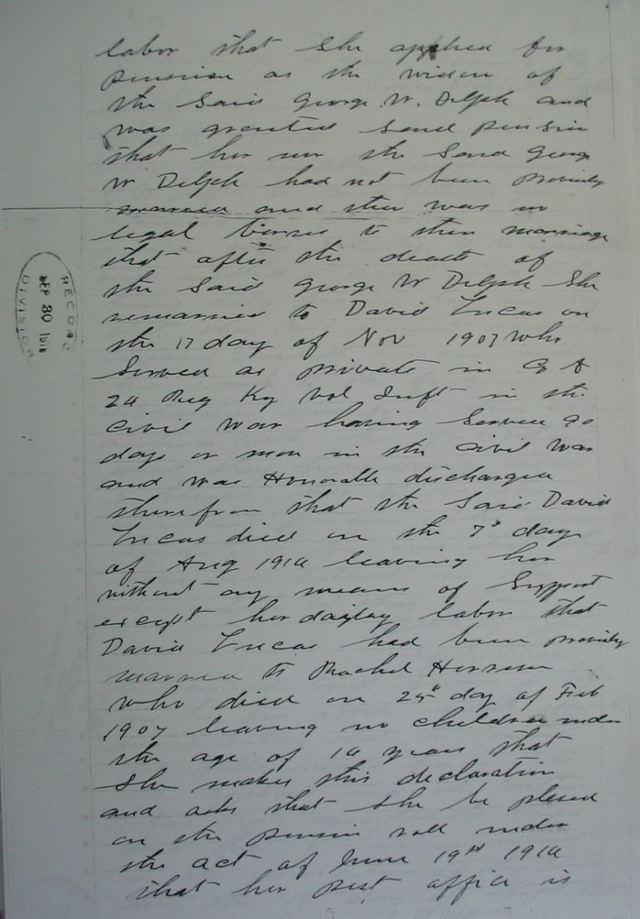 labor that she applied for
pension as the widow of
the said George W. Delph and
was granted said pension
that her nor the said George
W Delph had not been previously
married and there was no
legal barrier to their marriage
that after the death of
the said George W Delph she
remarried to David Lucas on
the 17 day of Nov 1907 who
served as private in Co
24 Reg Ky Vol Inft in the
civil war having served 90
days or more in the civil war
and was Honorable discharged
therefrom that the said David
Lucas died on the 7" day
of Aug 1916 leaving her
without any means of support
except her dayley labor that
David Lucas had been previously
married to Rachel
who died on day of Feb
1907 leaving no children under
the age of 16 years that
she makes this declaration
and asks that she be placed
on the pension roll under
the act of June 19th 1916
that her post office is
RECORD
SEP 30
DIVISION